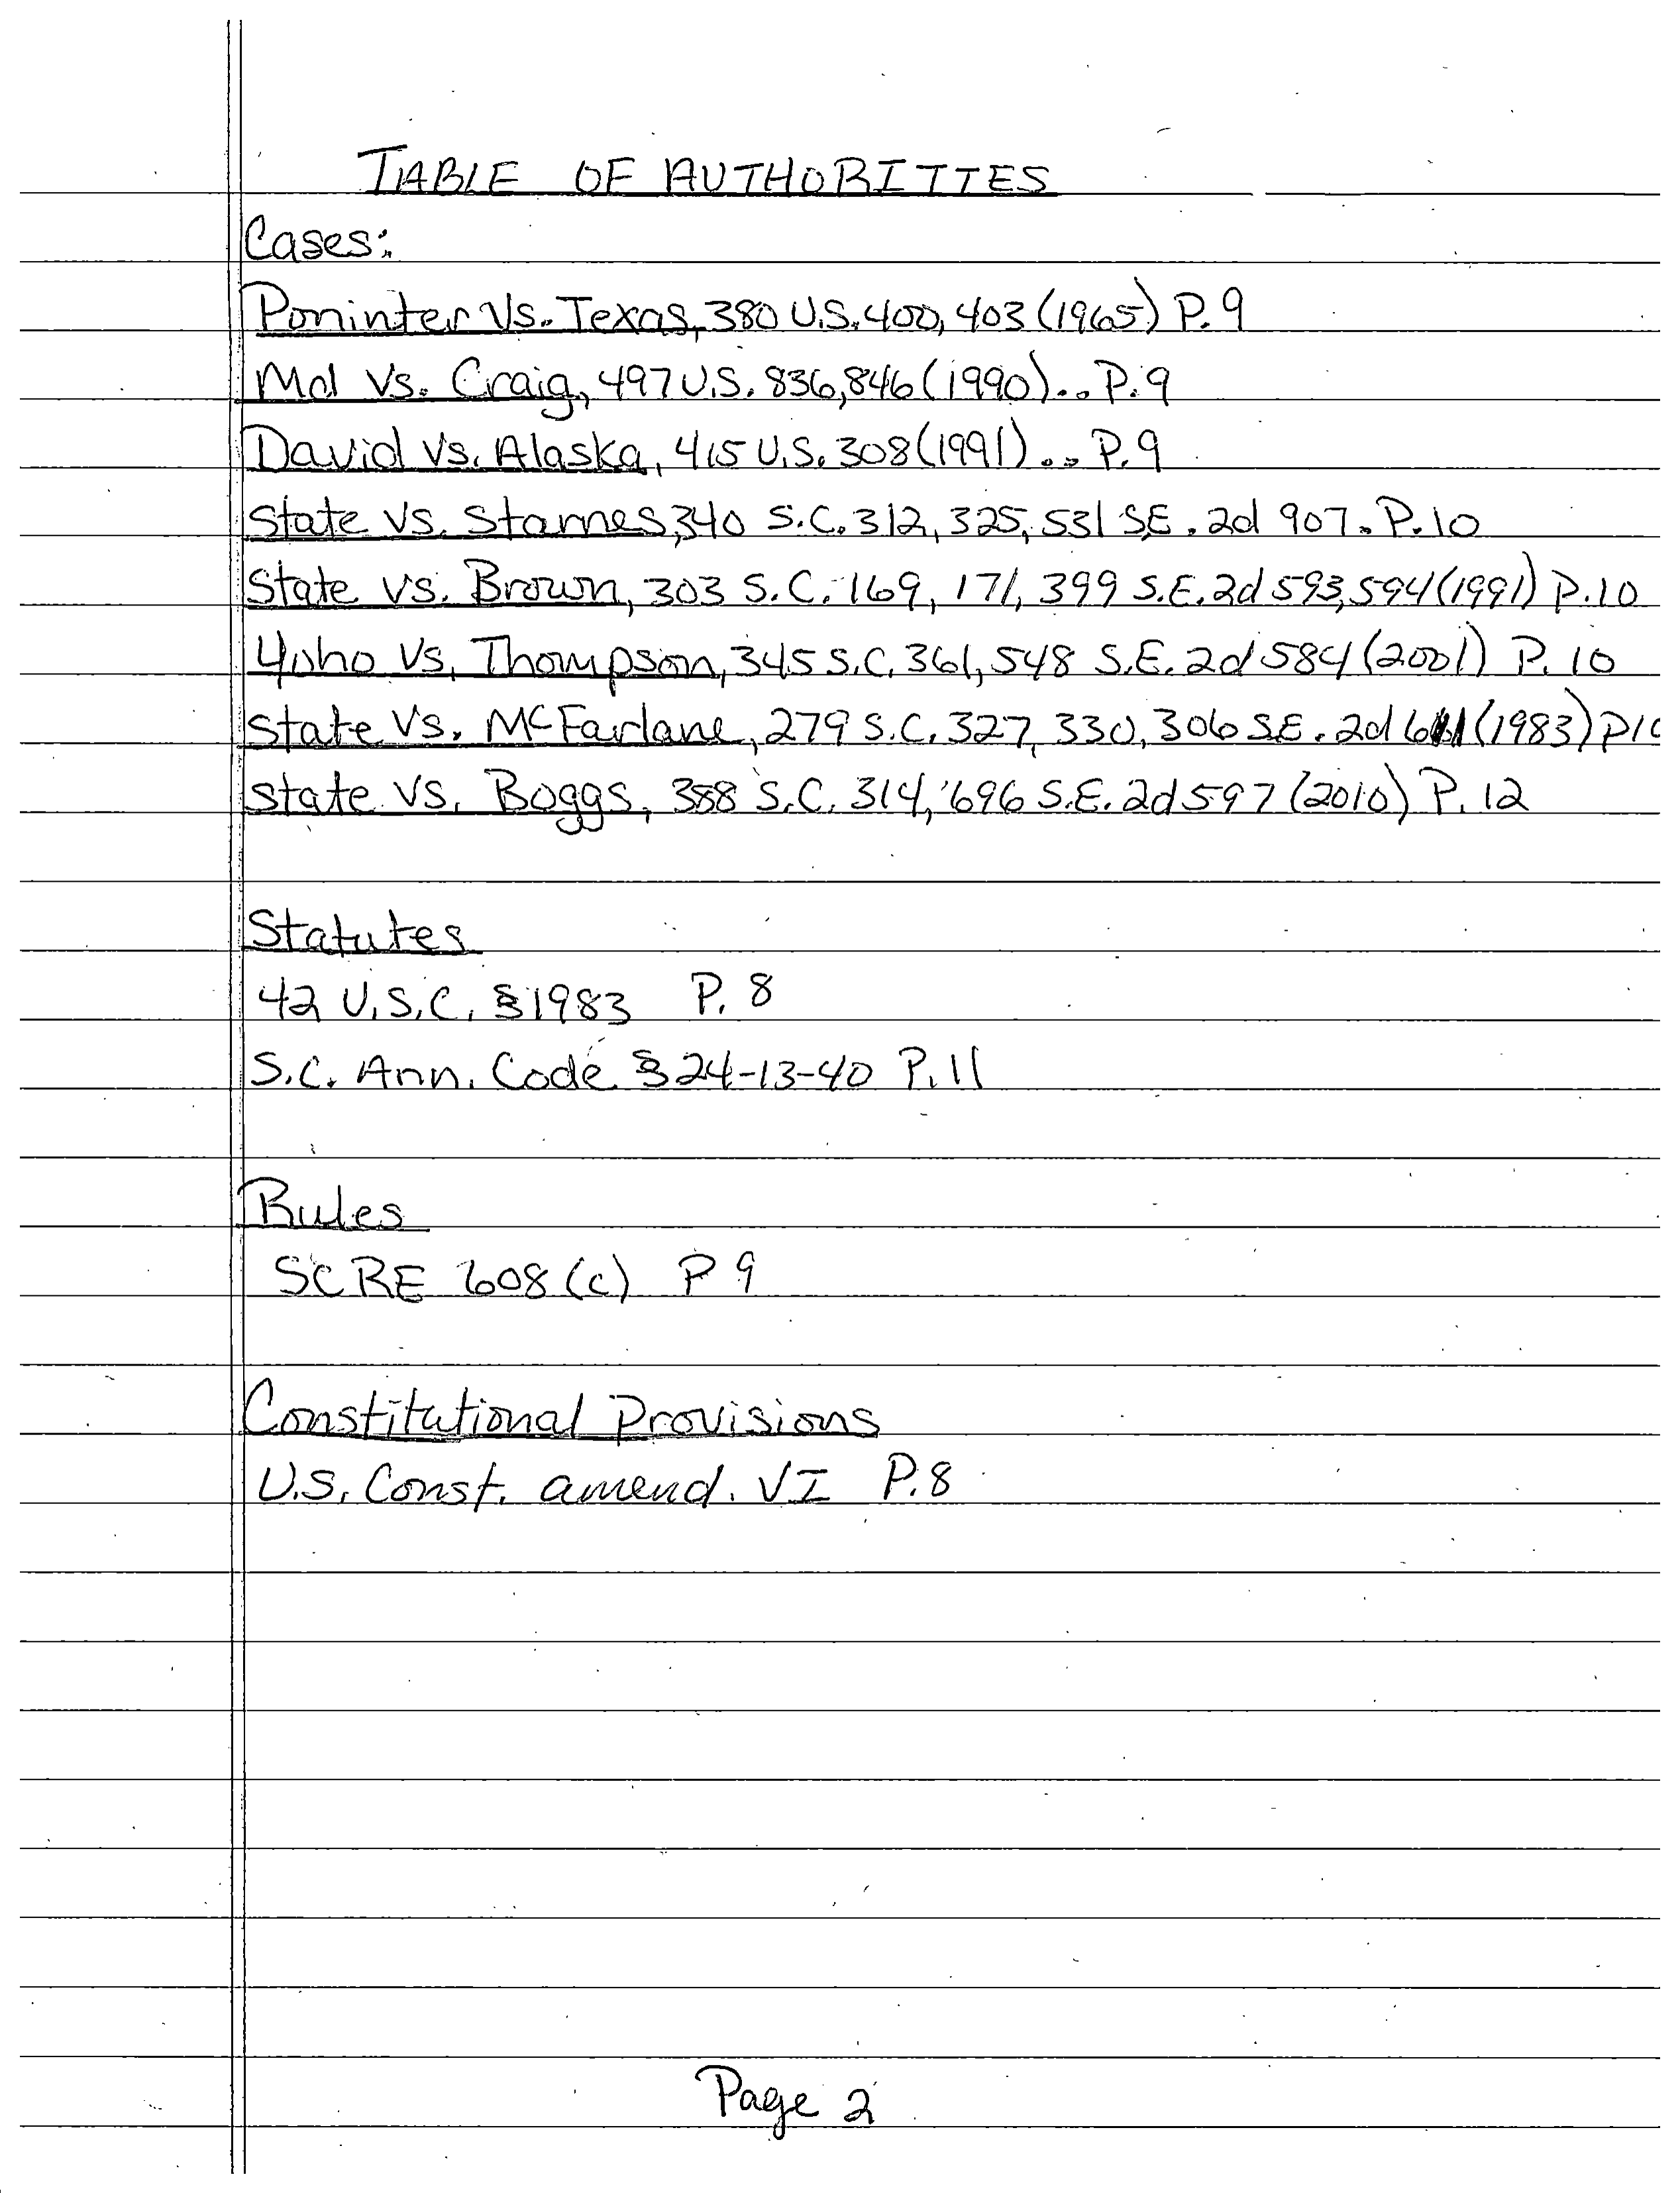 TABLE OF AUTHORITIES
Cases:
Poninter Vs. Texas, 380 U.S. 400, 403 (1965) P. 9
Md Vs. Craig, 497 U.S. 836, 846 (1990)... P. 9
David Vs. Alaska, 415 U.S. 308 (1991)... P. 9
State VS. Starnes, 340 S.C. 312, 325, 531 S.E. 2d 907. P. 10
State VS. Brown, 303 S.C. 169, 171, 399 S.E. 2d 593, 594 (1991) P. 10
Yoho Vs. Thompson, 345 S.C. 361, 548 S.E. 2d 584 (2001) P. 10
State Vs. McFarlane, 279 S.C. 327, 330, 306 S.E. 2d (1983) P10
State VS. Boggs, 388 S.C. 314, 696 S.E. 2d 597 (2010) P. 12
Statutes
42 U.S.C. § 1983 P. 8
S.C. Ann. Code § 24-13-40 P. 11
Rules
SCRE 608 (c) P 9
Constitutional Provisions
U.S. Const. amend. VI P. 8
Page 2